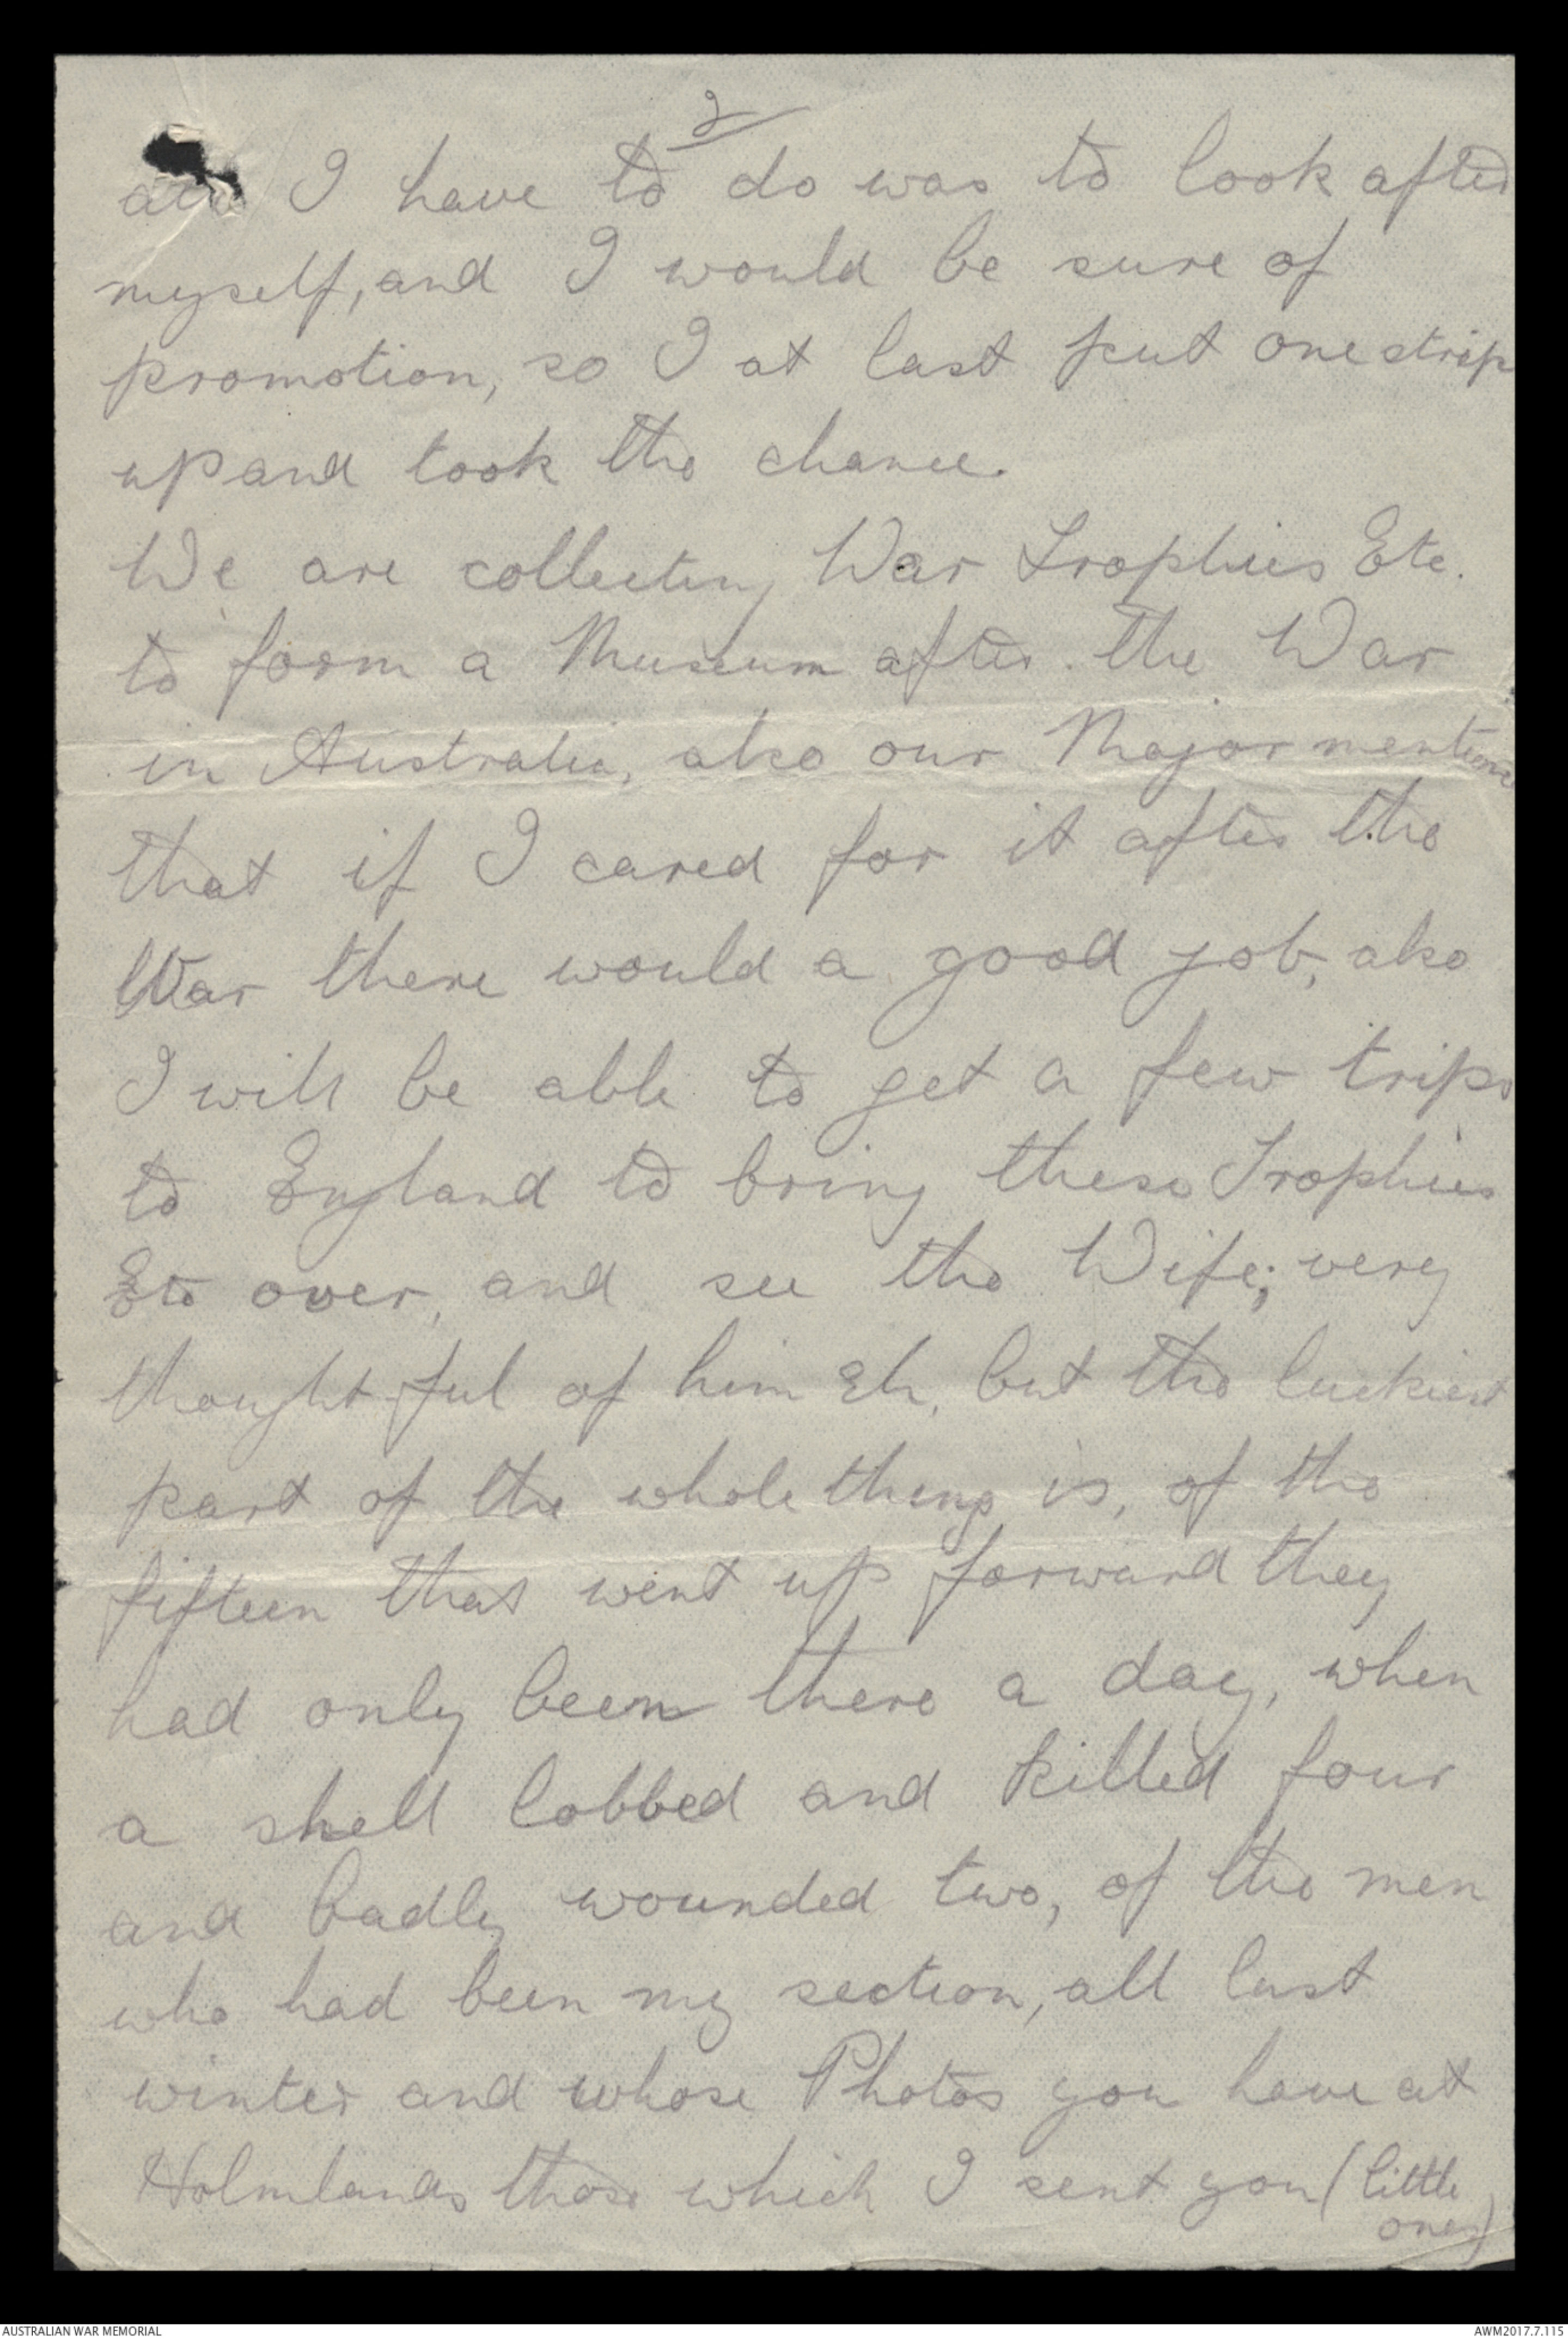 2
I have to do was to look after
myself, and I would be sure of
promotion, so I at last put one strip
up and took the chance.
We are collecting War Trophies Etc.
to form a Museum after the War
in Australia, also our Major mentione
that if I cared for it after the
War there would a good job, also
I will be able to get a few trips
to England to bring these Trophies
Etc over, and see the Wife; very
thoughtful of him Eh, but the luckiest
part of the whole thing is, of the
fifteen that went up forward they
had only been there a day, when
a shell lobbed and killed four
and badly wounded two, of the men
who had been my section, all last
winter and whose Photos you have at
Holmlands those which I sent you (little
ones)
AUSTRALIAN WAR MEMORIAL
AWM2017.7.115